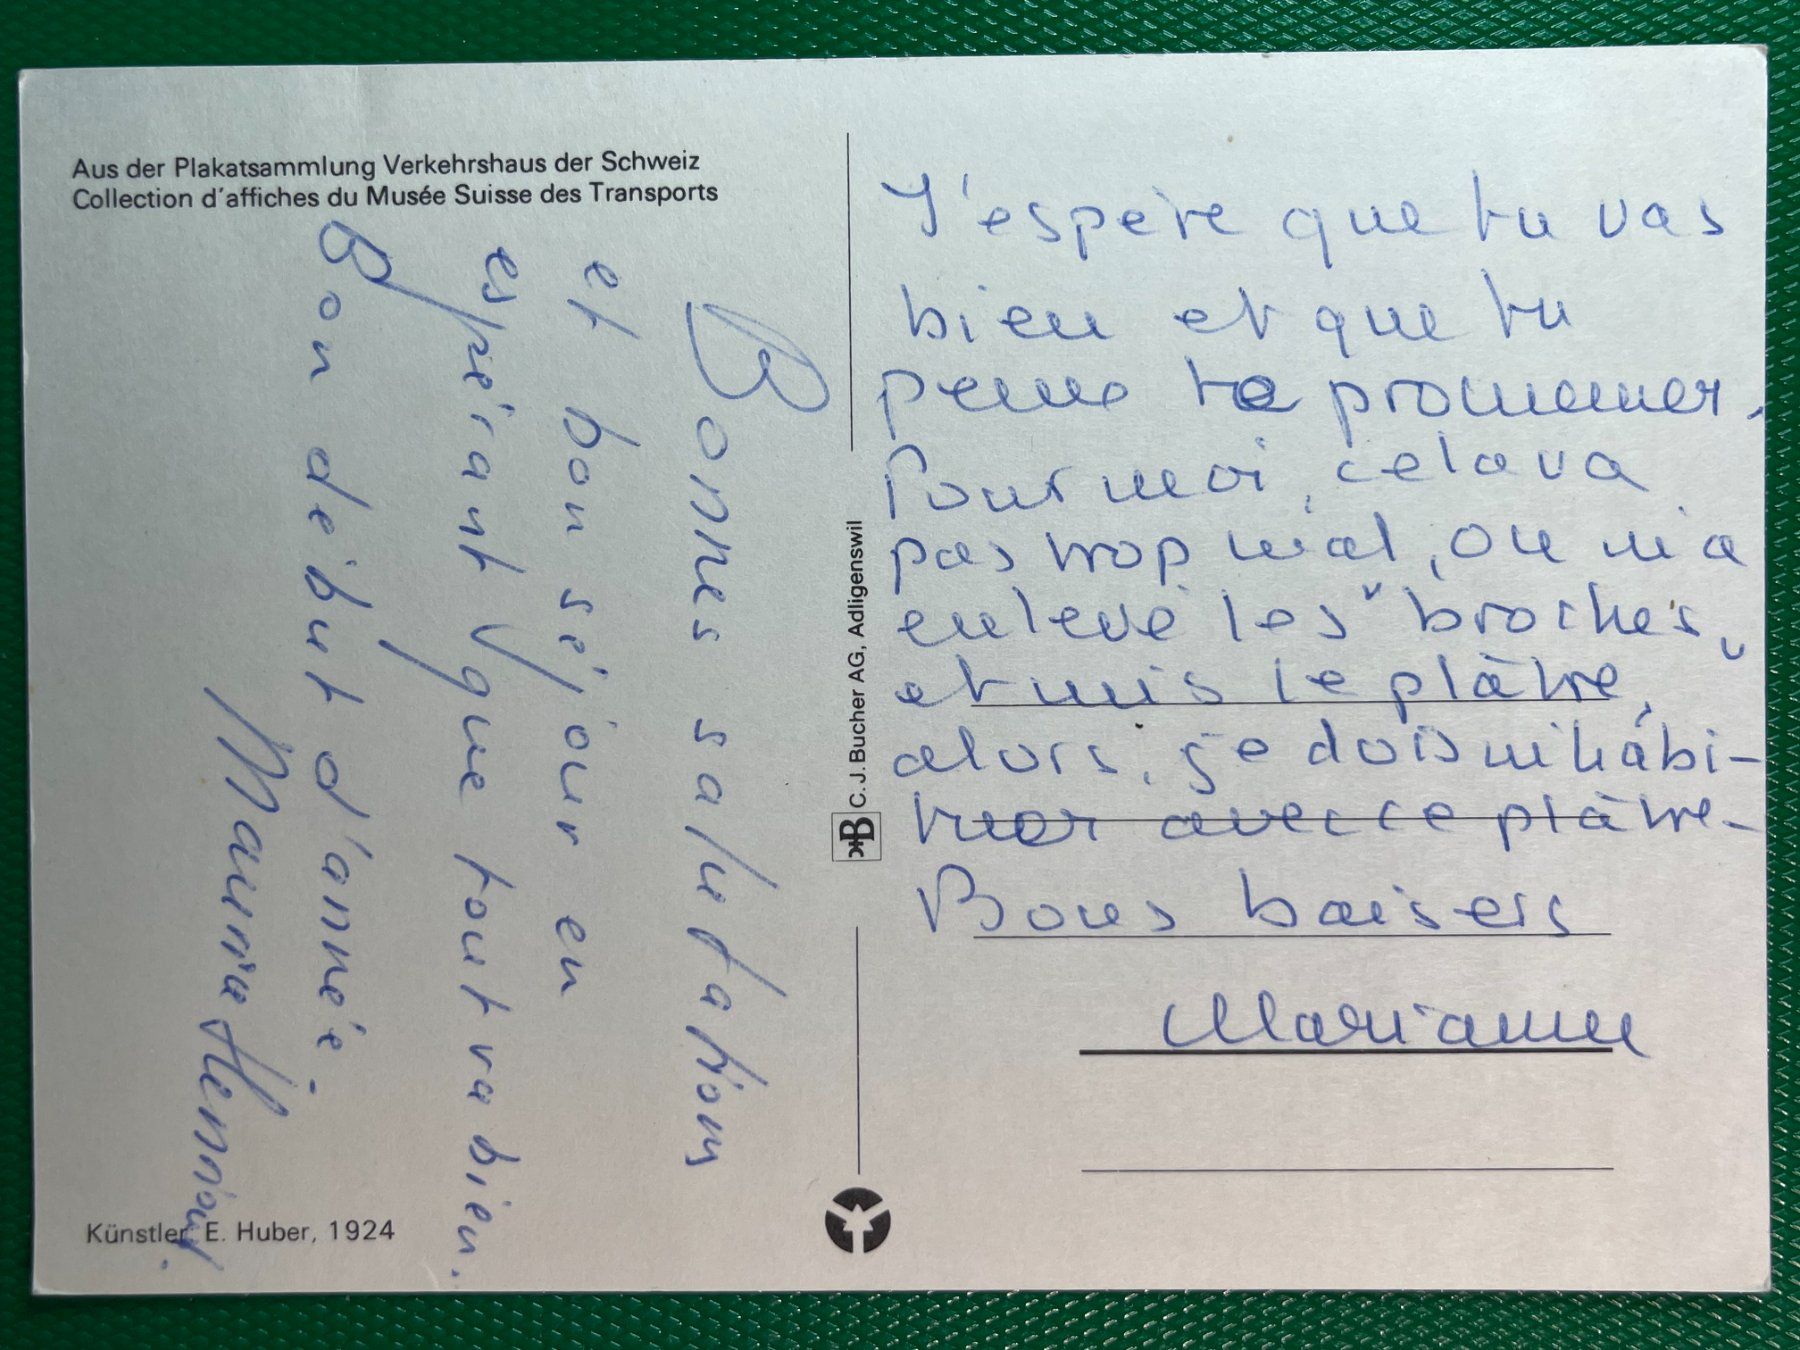 Aus der Plakatsammlung Verkehrshaus der Schweiz
Collection d'affiches du Musée Suisse des Transports
Bonnes salutations
et bon séjour en
espérant que tout va bien.
Bon début d'année.
Künstler: E. Huber, 1924
C. J. Bucher AG, Adligenswil
J'espère que tu vas
bien et que tu
peux te promener.
Pour moi, cela va
pas trop mal, on m'a
enlevé les "broches"
et mis le plâtre,
alors, je dois m'habi-
tuer avec ce plâtre-
Bons baisers
Marianne